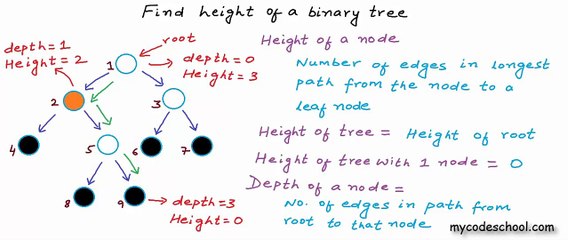 Find height of a binary tree
depth=1
Height=2
root
1
depth=0
Height=3
2
3
4
5
6
7
8
9
depth=3
Height=0
Height of a node
Number of edges in longest
path from the node to a
leaf node
Height of tree = Height of root
Height of tree with 1 node = 0
Depth of a node =
No. of edges in path from
root to that node
mycodeschool.com